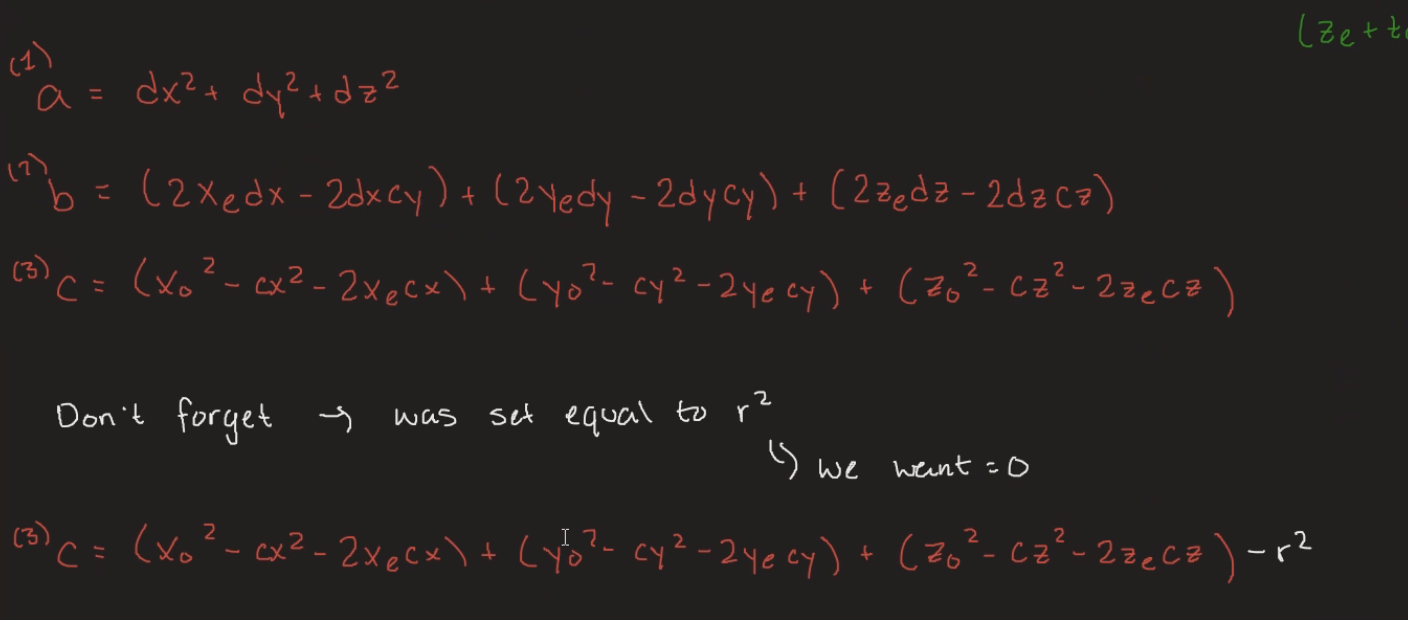 (ze + t
(1) a = dx² + dy² + dz²
(2) b = (2xₑdx - 2dxcy) + (2yₑdy - 2dycy) + (2zₑdz - 2dzcz)
(3) c = (x₀² - cx² - 2xₑcx) + (y₀² - cy² - 2yₑcy) + (z₀² - cz² - 2zₑcz)
Don't forget → was set equal to r²
↳ we want = 0
(3) c = (x₀² - cx² - 2xₑcx) + (y₀² - cy² - 2yₑcy) + (z₀² - cz² - 2zₑcz) - r²